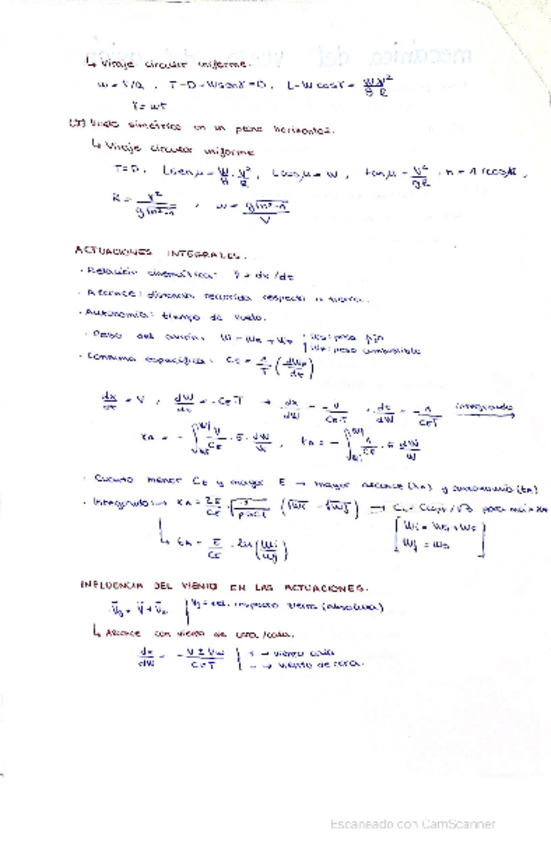 ↳ Viraje circular uniforme.
ω = V/R , T-D-Wsenγ=0 , L-Wcosγ = W/g V²/R
γ = ωt
Vuelo simétrico en un plano horizontal.
↳ Viraje circular uniforme
T=D, Lsenμ = W/g · V²/R , Lcosμ = W , tanμ = V²/gR , n = 1/cosμ ,
R = V²/g√n²-1 , ω = g√n²-1/V
ACTUACIONES INTEGRALES.
· Relación cinemática: V = dx/dt
· Alcance: distancia recorrida respecto a tierra.
· Autonomía: tiempo de vuelo.
· Peso del avión: W = +
peso fijo
peso combustible
· Consumo específico: C_E = 1/T (dW_F/dt)
dx/dt = V , dW/dt = -C_E T → dx/dW = -V/C_E T , dt/dW = -1/C_E T integrando
x_A = -∫ V/C_E · E · dW/W , t_A = -∫ 1/C_E · E dW/W
· Cuanto menor C_E y mayor E → mayor alcance (x_A) y autonomía (t_A)
· Integrando → x_A = 2E/C_E (√Wi - √Wf) →
↳ t_A = E/C_E · ln(Wi/Wf)
INFLUENCIA DEL VIENTO EN LAS ACTUACIONES.
vel. respecto tierra (absoluta)
↳ Alcance con viento de cara/cola.
dx/dW = -V ± Vw/C_E T
+ → viento cola
- → viento de cara.
Escaneado con CamScanner